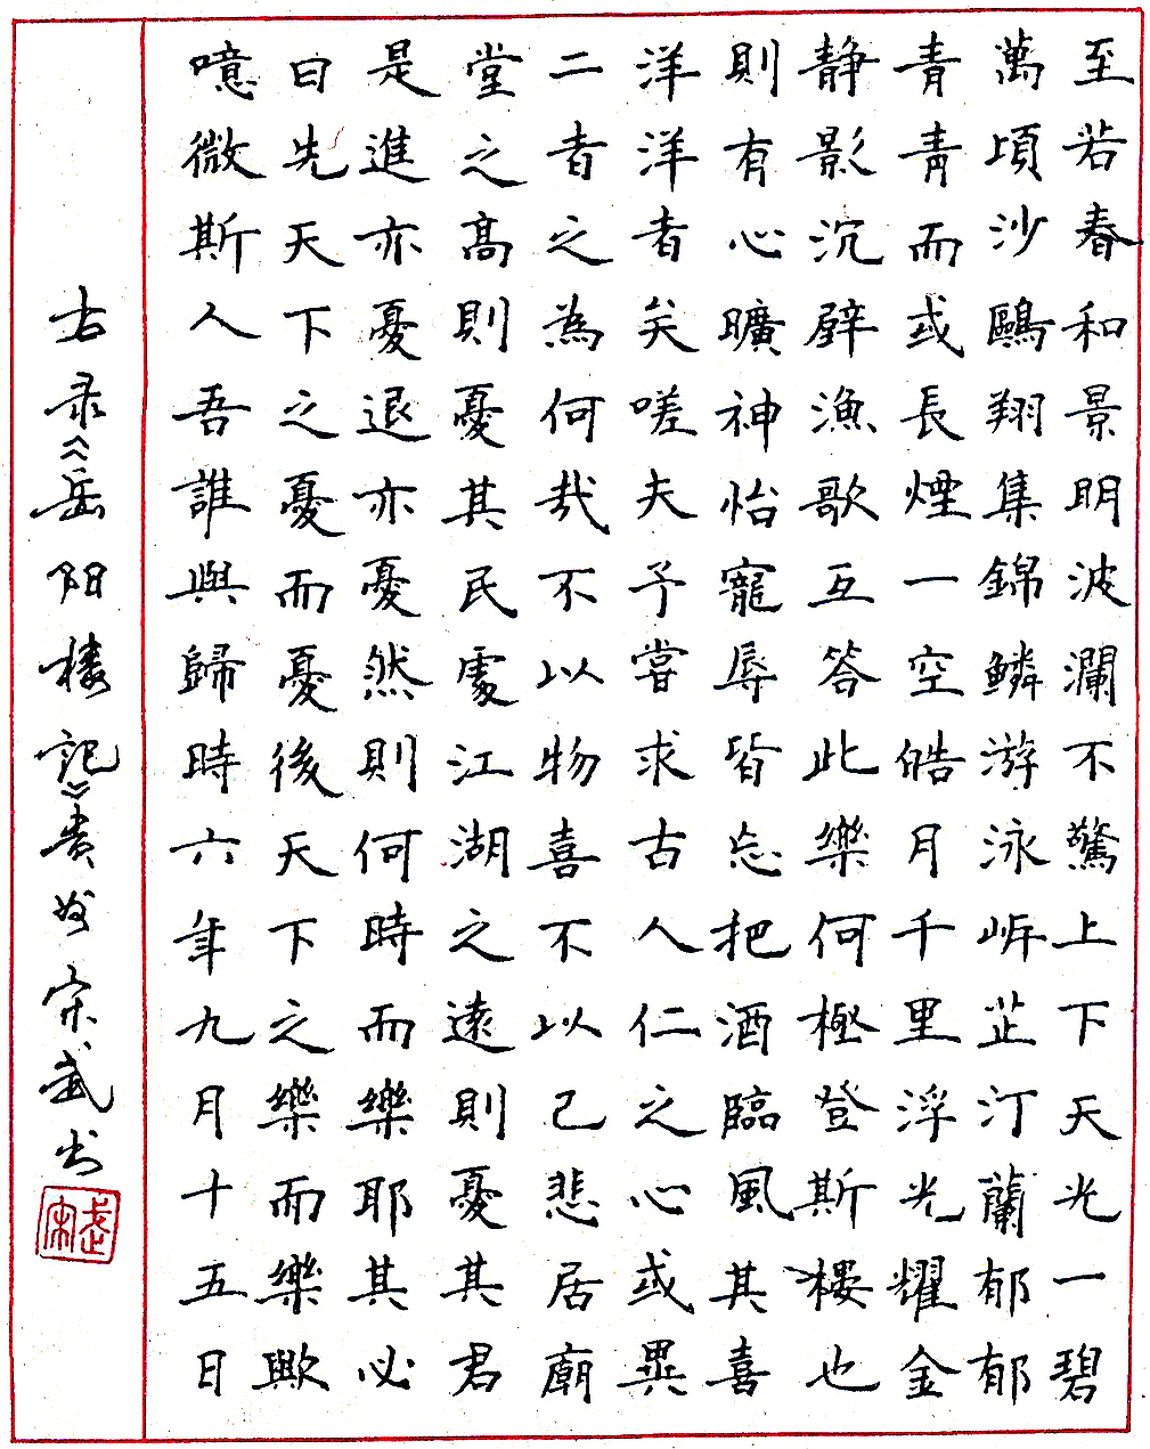 至若春和景明波瀾不驚上下天光一碧
萬頃沙鷗翔集錦鱗游泳岸芷汀蘭郁郁
青青而或長煙一空皓月千里浮光耀金
静影沉璧漁歌互答此樂何極登斯樓也
則有心曠神怡寵辱皆忘把酒臨風其喜
洋洋者矣嗟夫予嘗求古人仁之心或異
二者之為何哉不以物喜不以己悲居廟
堂之高則憂其民處江湖之遠則憂其君
是進亦憂退亦憂然則何時而樂耶其必
曰先天下之憂而憂後天下之樂而樂歟
噫微斯人吾誰與歸時六年九月十五日
右录《岳阳楼記》贵州宋武书
宋武